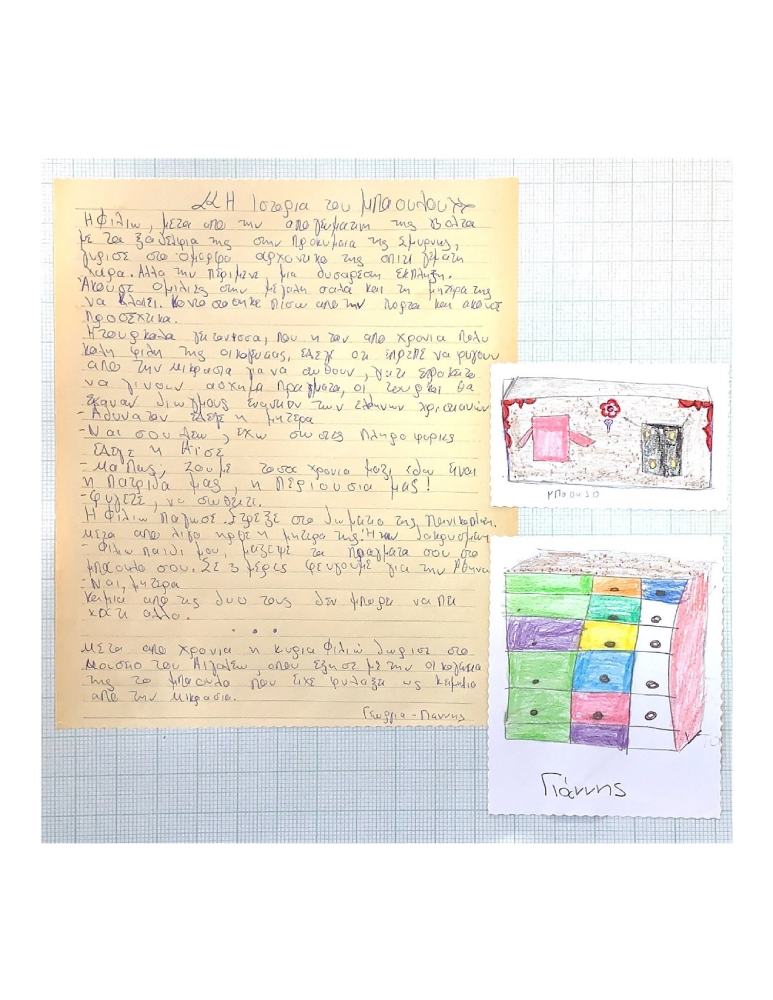 << Η Ιστορια του μπαουλου >>
Η Φιλιω, μετα απο την απογευματινη της βολτα
με τα ξαδελφια της στην προκυμαια της Σμυρνης,
γυρισε στο όμορφο αρχοντικο της σπιτι γεματη
χαρα. Αλλα την περιμενε μια δυσαρεστη εκπληξη.
Ακουσε ομιλιες στην μεγαλη σαλα και τη μητερα της
να κλαιει. Κοντοσταθηκε πισω απο την πορτα και ακουσε
προσεχτικα.
Η τουρκαλα γειτονισσα, που η ταν απο χρονια πολυ
καλη φιλη της οικογενειας, ελεγε οτι έπρεπε να φυγουν
απο την μικρασια για να σωθουν, γιατι εφοκειτο
να γινουν ασχημα πραγματα, οι τουρκοι θα
έκαναν διωγμους εναντιον των ελληνων χριστιανων
- Αδυνατον έλεγε η μητερα
- Ναι σου λεω, εχω σωστες πληροφοριες
έλεγε η Αϊσε
- Μα πως, ζουμε τοσα χρονια μαζι εδω ειναι
η πατριδα μας, η περιουσια μας!
- φυγετε, να σωθειτε.
Η Φιλιω παγωσε. Ετρεξε στο δωματιο της πανικοβλητη.
Μετα απο λιγο ηρθε η μητερα της. Ήταν δακρυσμενη
- Φιλιω παιδι μου, μαζεψε τα πραγματα σου στο
μπαουλο σου. Σε 3 μερες φευγουμε για την Αθηνα
- Ναι, μητερα
Καμια απο τις δυο τους δεν μπορει να πει
κατι αλλο.
...
Μετα απο χρονια η κυρια Φιλιώ δωρισε στο
μουσειο του Αιγαλεω, οπου έζησε με την οικογενεια
της το μπαουλο που ειχε φυλαξει ως κειμηλιο
απο την μικρασια.
Γεωργια - Γιαννης
μπαουλο
Γιάννης